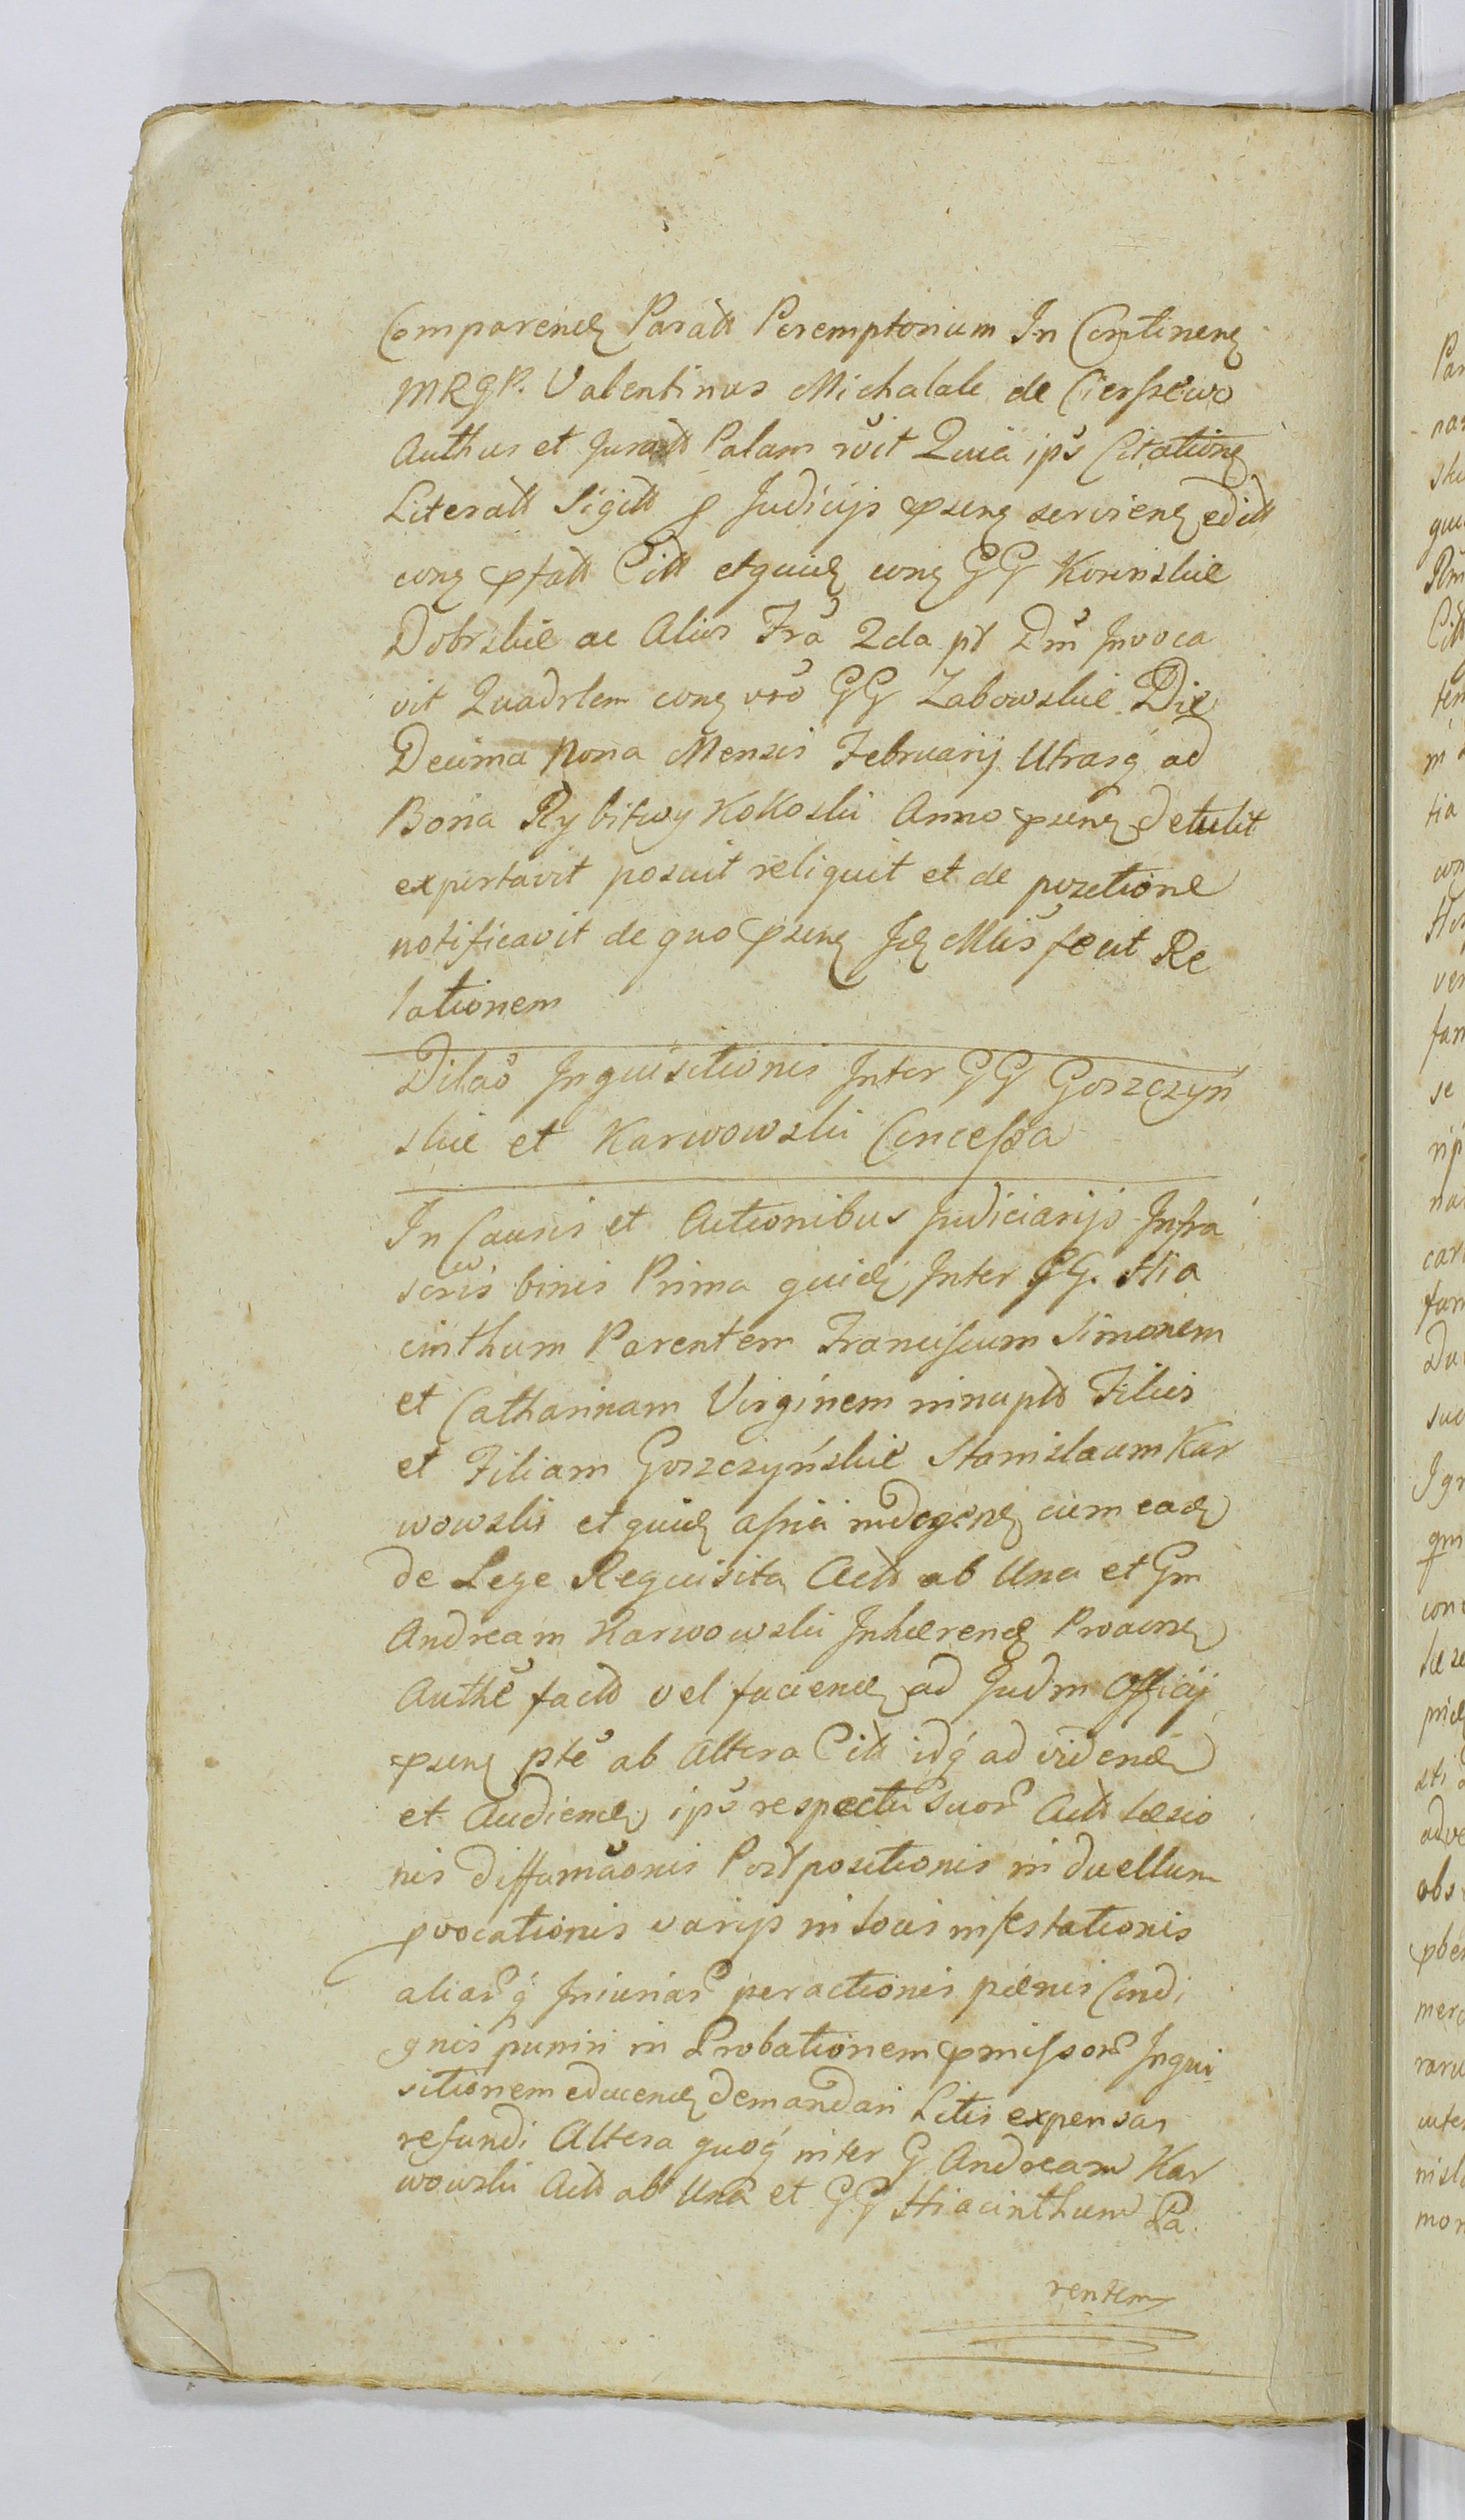 Comparend Paratt Peremptorium In Continen
MRGP. Valentinus Michalak de Cierszewo
Authus et Juratt Palam rőit Quia ips Citatione
Literatt Sigitt p Judicijs psens serviens editt
cong pfatt Citt et quid cong GG Korinskie
Dobrskie ac Alios Fra 2da pt Dm Invoca
vit Quadrlem cong vro GG Zabowskie Die
Decima Nona Mensis Februarij Utrasq ad
Bona Rybitwy Kokoski Anno psen detulit
exportavit posuit reliquit et de positione
notificavit de quo psens Id Mlis fecit Re
lationem
Dilao Inquisitionis Inter GG Goszczyń
skie et Karwowski Concessa
In Causis et Actionibus Judiciarijs Infra
scris binis Prima quid Inter GG. Hia
cinthum Parentem Franciscum Simonem
et Catharinam Virginem innuptt Filios
et Filiam Goszczyńskie Stanislaum Kar
wowski et quid cum ead
de Lege Requisita Actt ab Una et Gm
Andream Karwowski Inhærend
Authe factt vel faciend ad Judm Officij
psens pte ab Altera Citt idq ad videnđ
et Audiend ips respectu suor Actt Læsio
nis diffamaonis Postpositionis in duellum
pvocationis varijs in locis infestationis
aliarq Injuriar peractionis pænis Condi
gnis puniri in Probationem pmissor Inqui
sitionem educend demandari Litis expensas
refundi Altera quoq inter G Andream Kar
wowski Actt ab Una et GG Hiacinthum Pa
rentem